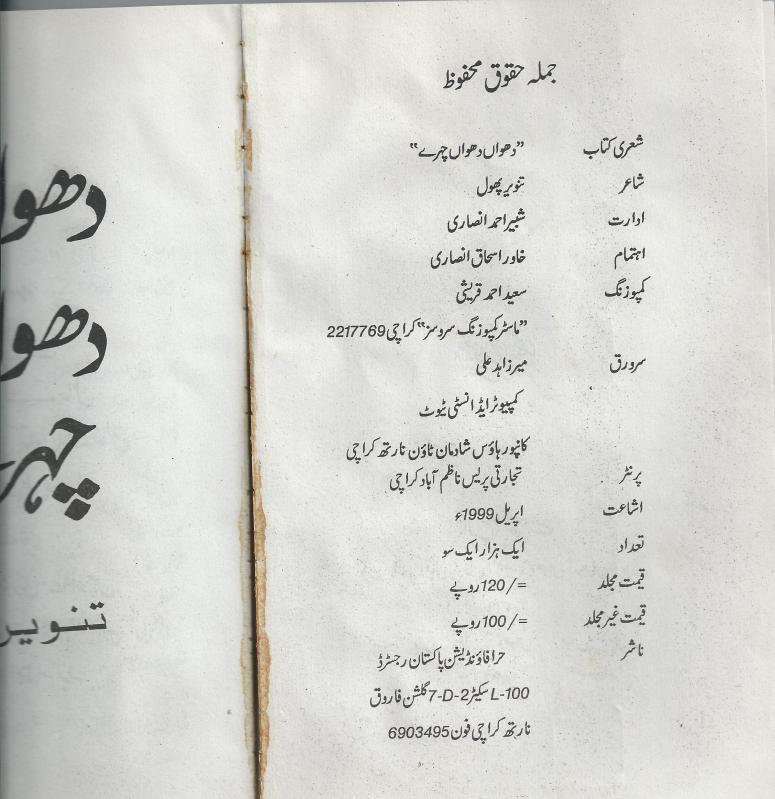 جملہ حقوق محفوظ
شعری کتاب ”دھواں دھواں چہرے“
شاعر تنویر پھول
ادارت شبیر احمد انصاری
اہتمام خاور اسحاق انصاری
کمپوزنگ سعید احمد قریشی
”ماسٹر کمپوزنگ سروسز“ کراچی 2217769
سرورق میر زاہد علی
کمپیوٹر ایڈ انسٹی ٹیوٹ
کانپور ہاؤس شادمان ٹاؤن نارتھ کراچی
پرنٹر تجارتی پریس ناظم آباد کراچی
اشاعت اپریل 1999ء
تعداد ایک ہزار ایک سو
قیمت مجلد =/120 روپے
قیمت غیر مجلد =/100 روپے
ناشر حرا فاؤنڈیشن پاکستان رجسٹرڈ
L-100 سیکٹر 7-D-2 گلشن فاروق
نارتھ کراچی فون 6903495
دھوا
دھوا
چہر
تنویر